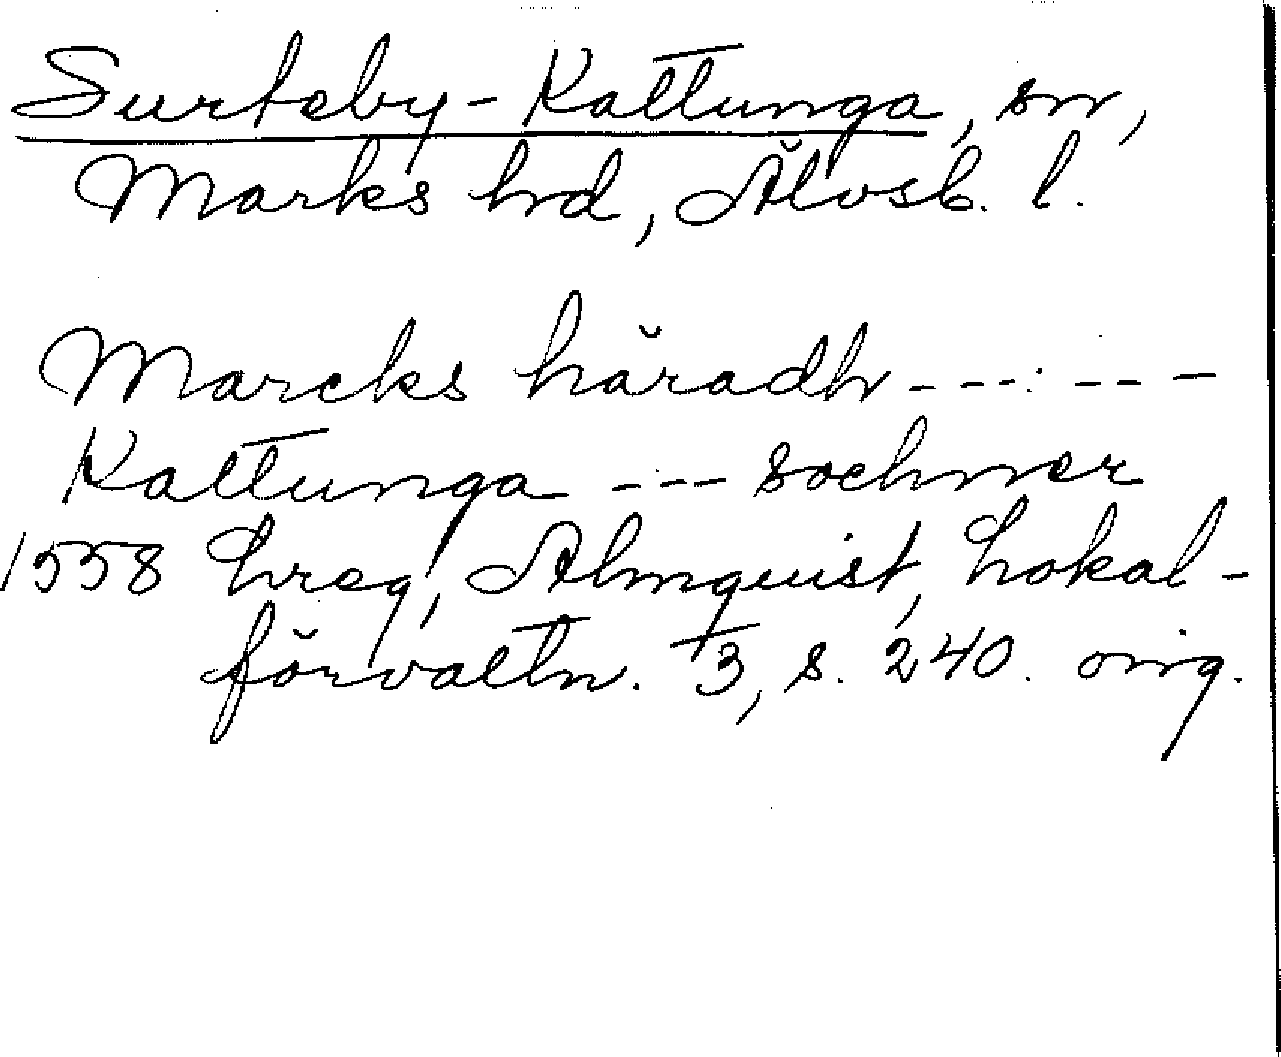 Surteby-Kattunga, sn,
Marks hd, Älvsb. l.
Marcks häradh - - - - - -
Kattunga - - - sochner
1558 hreg, Almquist, Lokal-
förvaltn. 3, s. 240. orig.